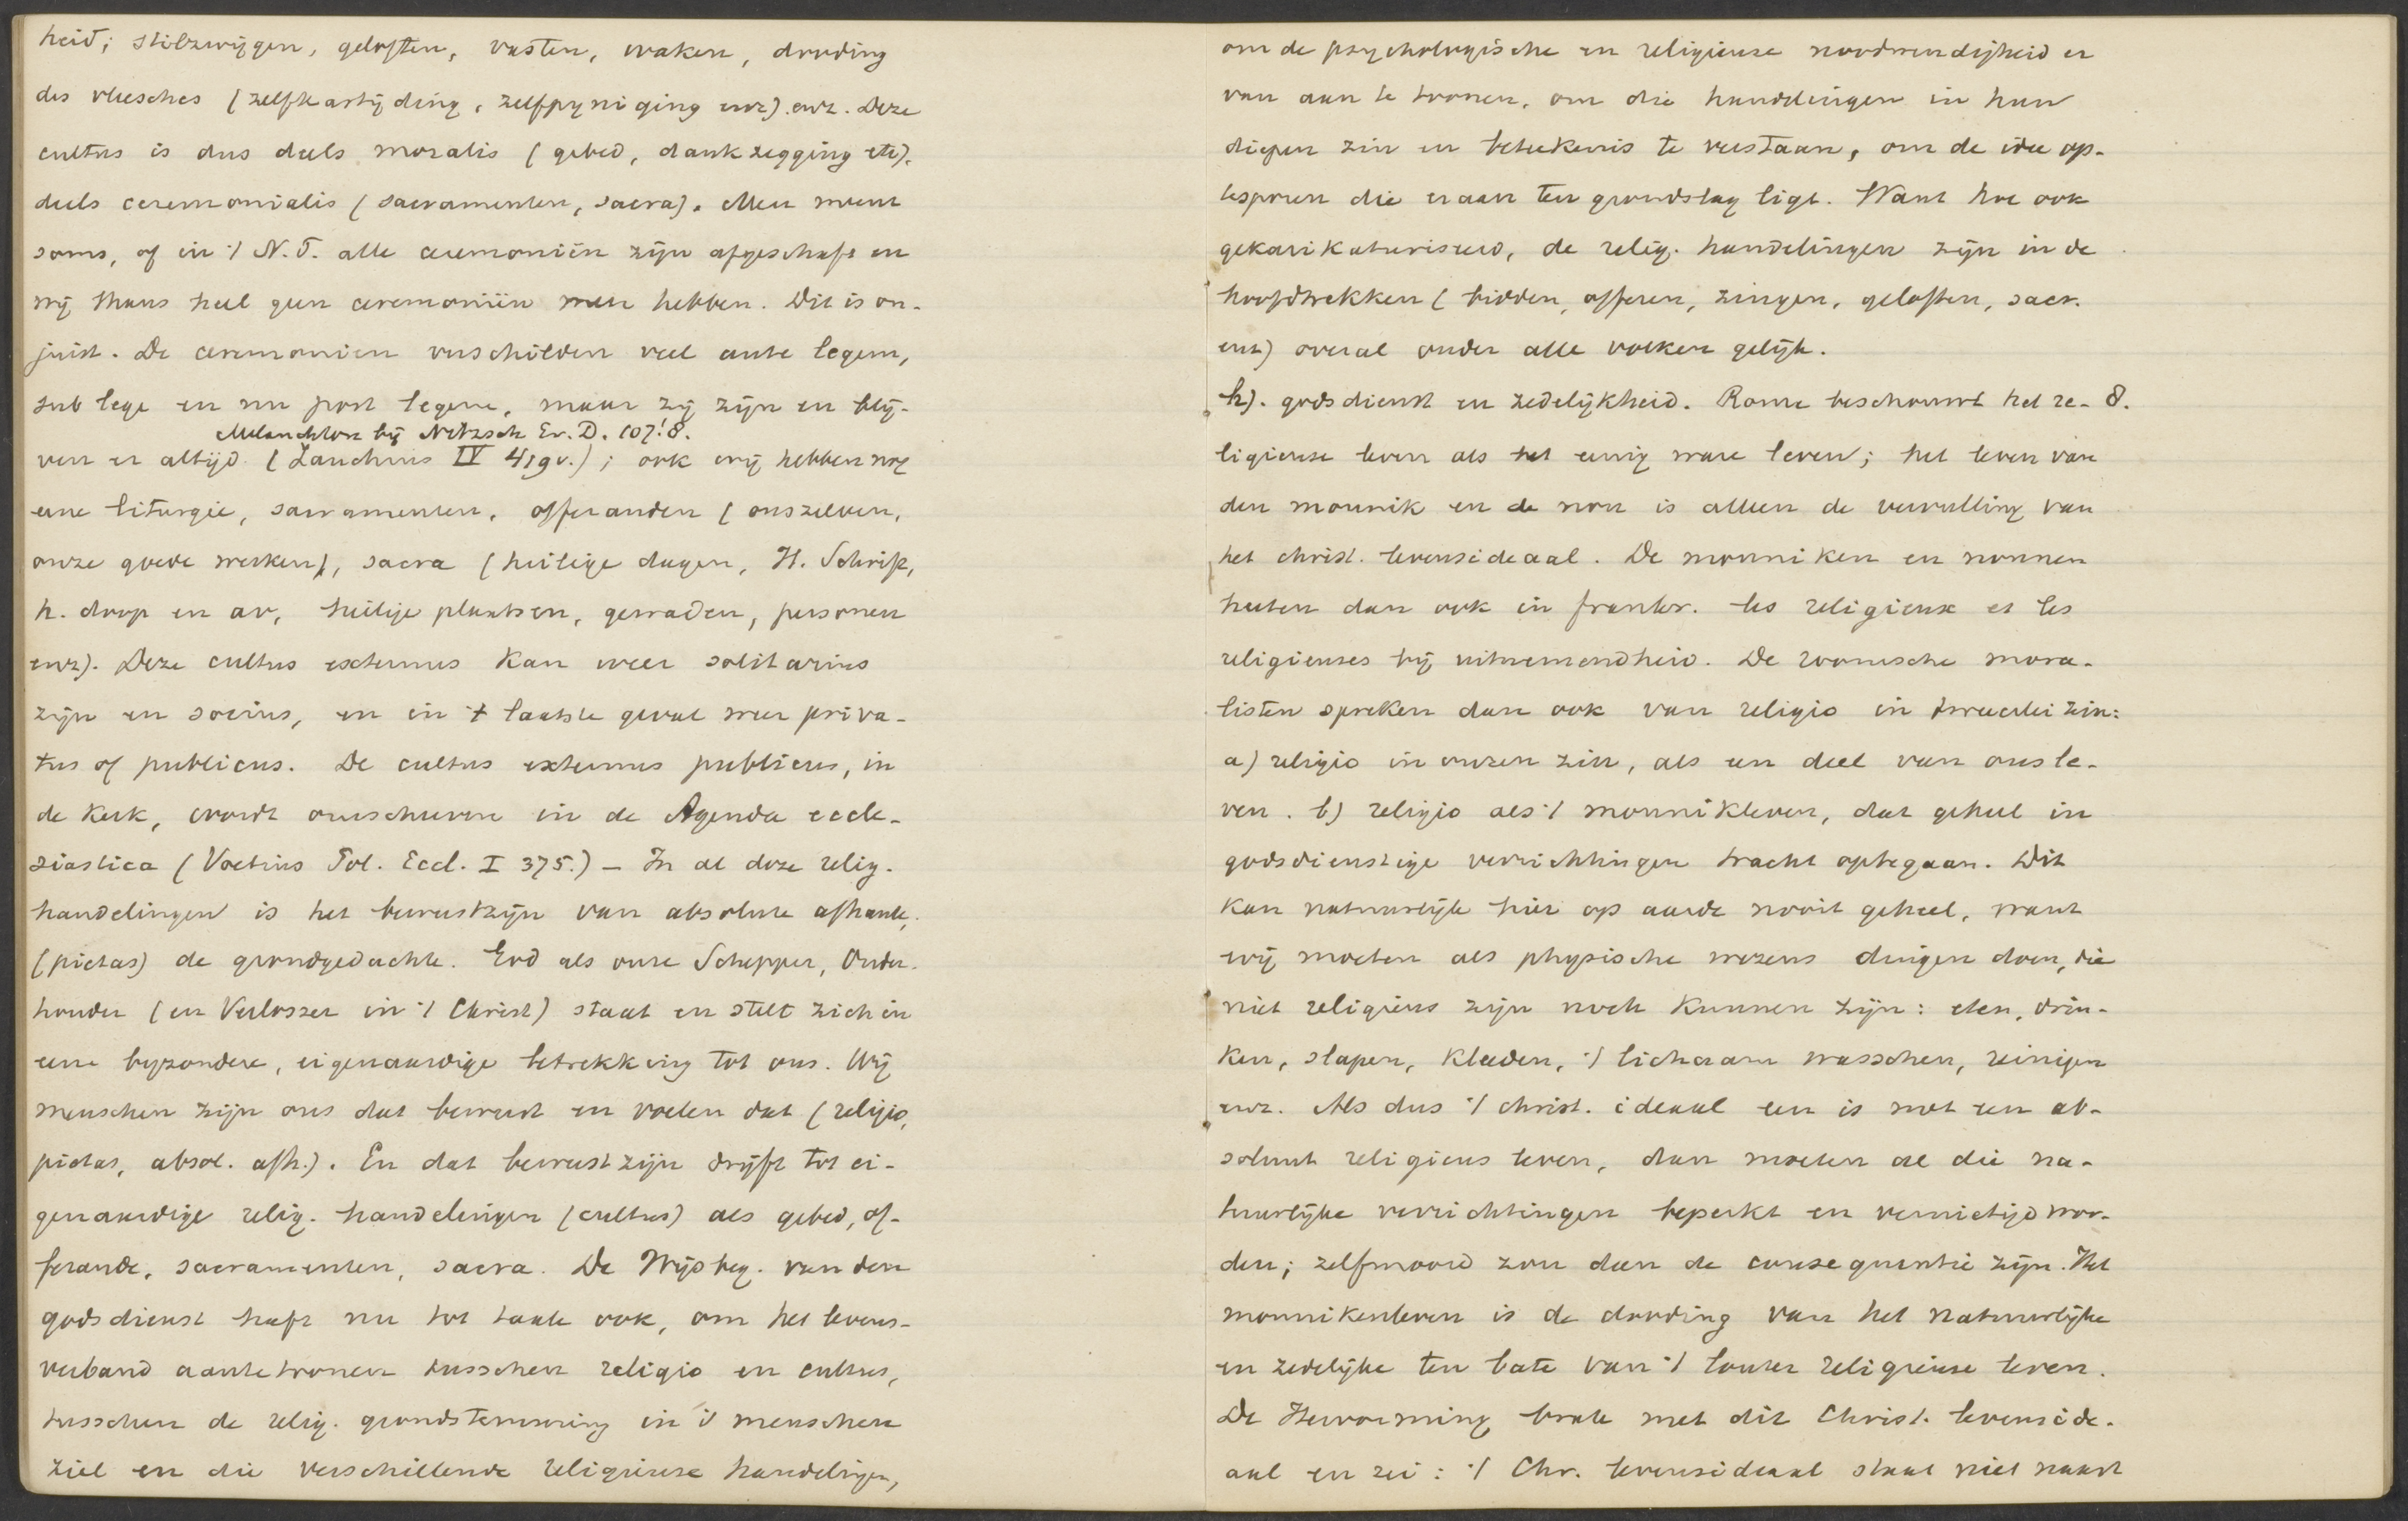 heid; stilzwijgen, geloften, vasten, waken, dooding
des vleesches (zelfkastijding, zelfpyniging enz). enz. Deze
cultus is dus deels moralis (gebed, dankzegging etc).
deels ceremonialis (sacramenten, sacra). Men meent
soms, of in 't N.T. alle ceremoniën zijn afgeschaft en
wij thans heel geen ceremoniën meer hebben. Dit is on-
juist. De ceremonien verschilden veel ante legem,
sub lege en nu post legem, maar zij zijn en blij-
Melanchton bij Nitzsch Ev. D. 107! 8.
ven er altijd. (Zanchius IV 419v.); ook wij hebben nog
eene liturgie, sacramenten, offeranden (onszelven,
onze goede werken), sacra (heilige dagen, H. Schrift,
h. doop en av, heilige plaatsen, gewaden, personen
enz). Deze cultus externus kan weer solitarius
zijn en socius, en in 't laatste geval weer priva-
tus of publicus. De cultus externus publicus, in
de kerk, wordt omschreven in de Agenda eccle-
siastica (Voetius Pol. Eccl. I 375.) – In al deze relig.
handelingen is het bewustzijn van absolute afhank.
(pietas) de grondgedachte. God als onze Schepper, Onder-
houder (en Verlosser in 't Christ) staat en stelt zich in
eene byzondere, eigenaardige betrekking tot ons. Wij
menschen zijn ons dat bewust en voelen dat (religio,
pietas, absol. afh.). En dat bewustzijn drijft tot ei-
genaardige relig. handelingen (cultus) als gebed, of-
ferande, sacramenten, sacra. De Wijsbeg. van den
godsdienst heeft nu tot taak ook, om het levens-
verband aantetoonen tusschen religio en cultus,
tusschen de relig. grondstemming in 's menschen
ziel en die verschillende religieuse handelingen,
om de psychologische en religieuse noodwendigheid er
van aan te toonen, om die handelingen in hun
diepen zin en beteekenis te verstaan, om de idee op-
tesporen die eraan ten grondslag ligt. Want hoe ook
gekarikaturiseerd, de relig. handelingen zijn in de
hoofdtrekken (bidden, offeren, zingen, geloften, sacr.
enz) overal onder alle volken gelijk.
h). godsdienst en zedelijkheid. Rome beschouwt het re- 8.
ligieuse leven als het eenig ware leven; het leven van
den monnik en de non is alleen de vervulling van
het christ. levensideaal. De monniken en nonnen
heeten dan ook in frankr. les religieux et les
religieuses bij uitnemendheid. De roomsche mora-
listen spreken dan ook van religio in tweeërlei zin:
a) religio in onzen zin, als een deel van ons le-
ven. b) religio als 't monnikleven, dat geheel in
godsdienstige verrichtingen tracht optegaan. Dit
kan natuurlijk hier op aarde nooit geheel, want
wij moeten als physische wezens dingen doen, die
niet religieus zijn noch kunnen zijn: eten, drin-
ken, slapen, kleeden, 't lichaam wasschen, reinigen
enz. Als dus 't christ. ideaal een is met een ab-
soluut religieus leven, dan moeten al die na-
tuurlijke verrichtingen beperkt en vernietigd wor-
den; zelfmoord zou dan de consequentie zijn. Het
monnikenleven is de dooding van het natuurlijke
en zedelijke ten bate van 't louter religieuse leven.
De Hervorming brak met dit Christ. levenside-
aal en zei: 't Chr. levensideaal staat niet naast